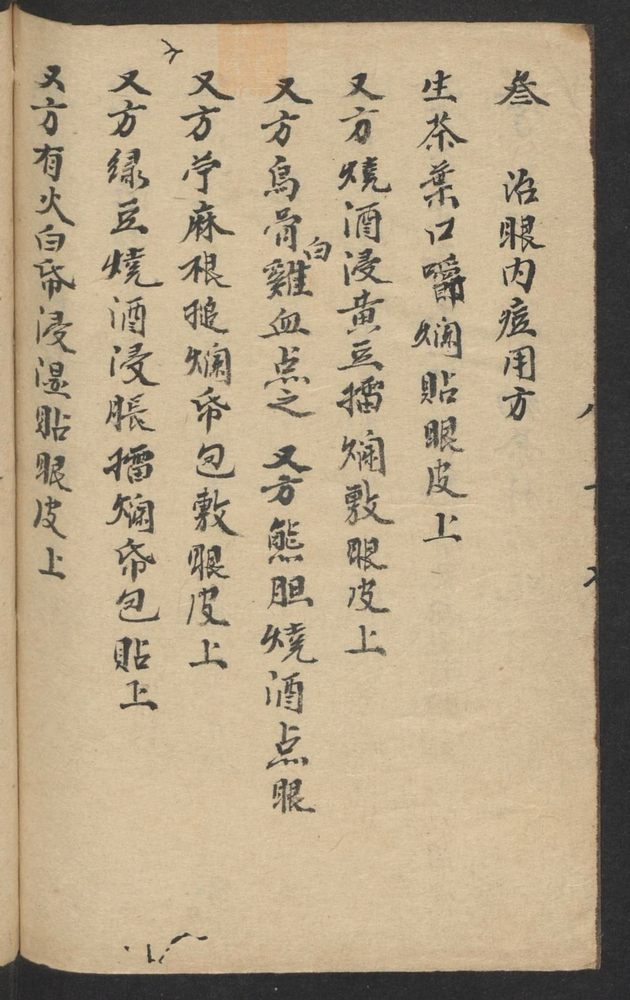 叁　治眼内痘用方
生茶葉口嚼爛貼眼皮上
又方燒酒浸黄豆擂爛敷眼皮上
又方烏骨白雞血点之　又方熊胆燒酒点眼
又方苧麻根搥爛帋包敷眼皮上
又方緑豆燒酒浸脹擂爛帋包貼上
又方有火白帋浸湿貼眼皮上